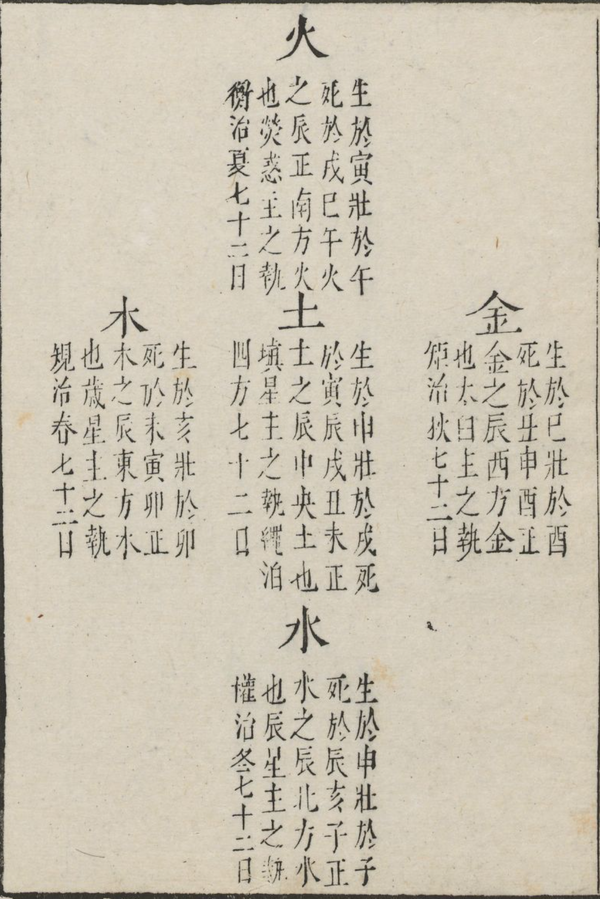 火
生於寅壯於午
死於戌巳午火
之辰正南方火
也熒惑主之執
衡治夏七十二日
金
生於巳壯於酉
死於丑申酉正
金之辰西方金
也太白主之執
矩治秋七十二日
土
生於申壯於戌死
於寅辰戌丑未正
土之辰中央土也
塡星主之執繩治
四方七十二日
木
生於亥壯於卯
死於未寅卯正
木之辰東方木
也歲星主之執
規治春七十二日
水
生於申壯於子
死於辰亥子正
水之辰北方水
也辰星主之執
權治冬七十二日